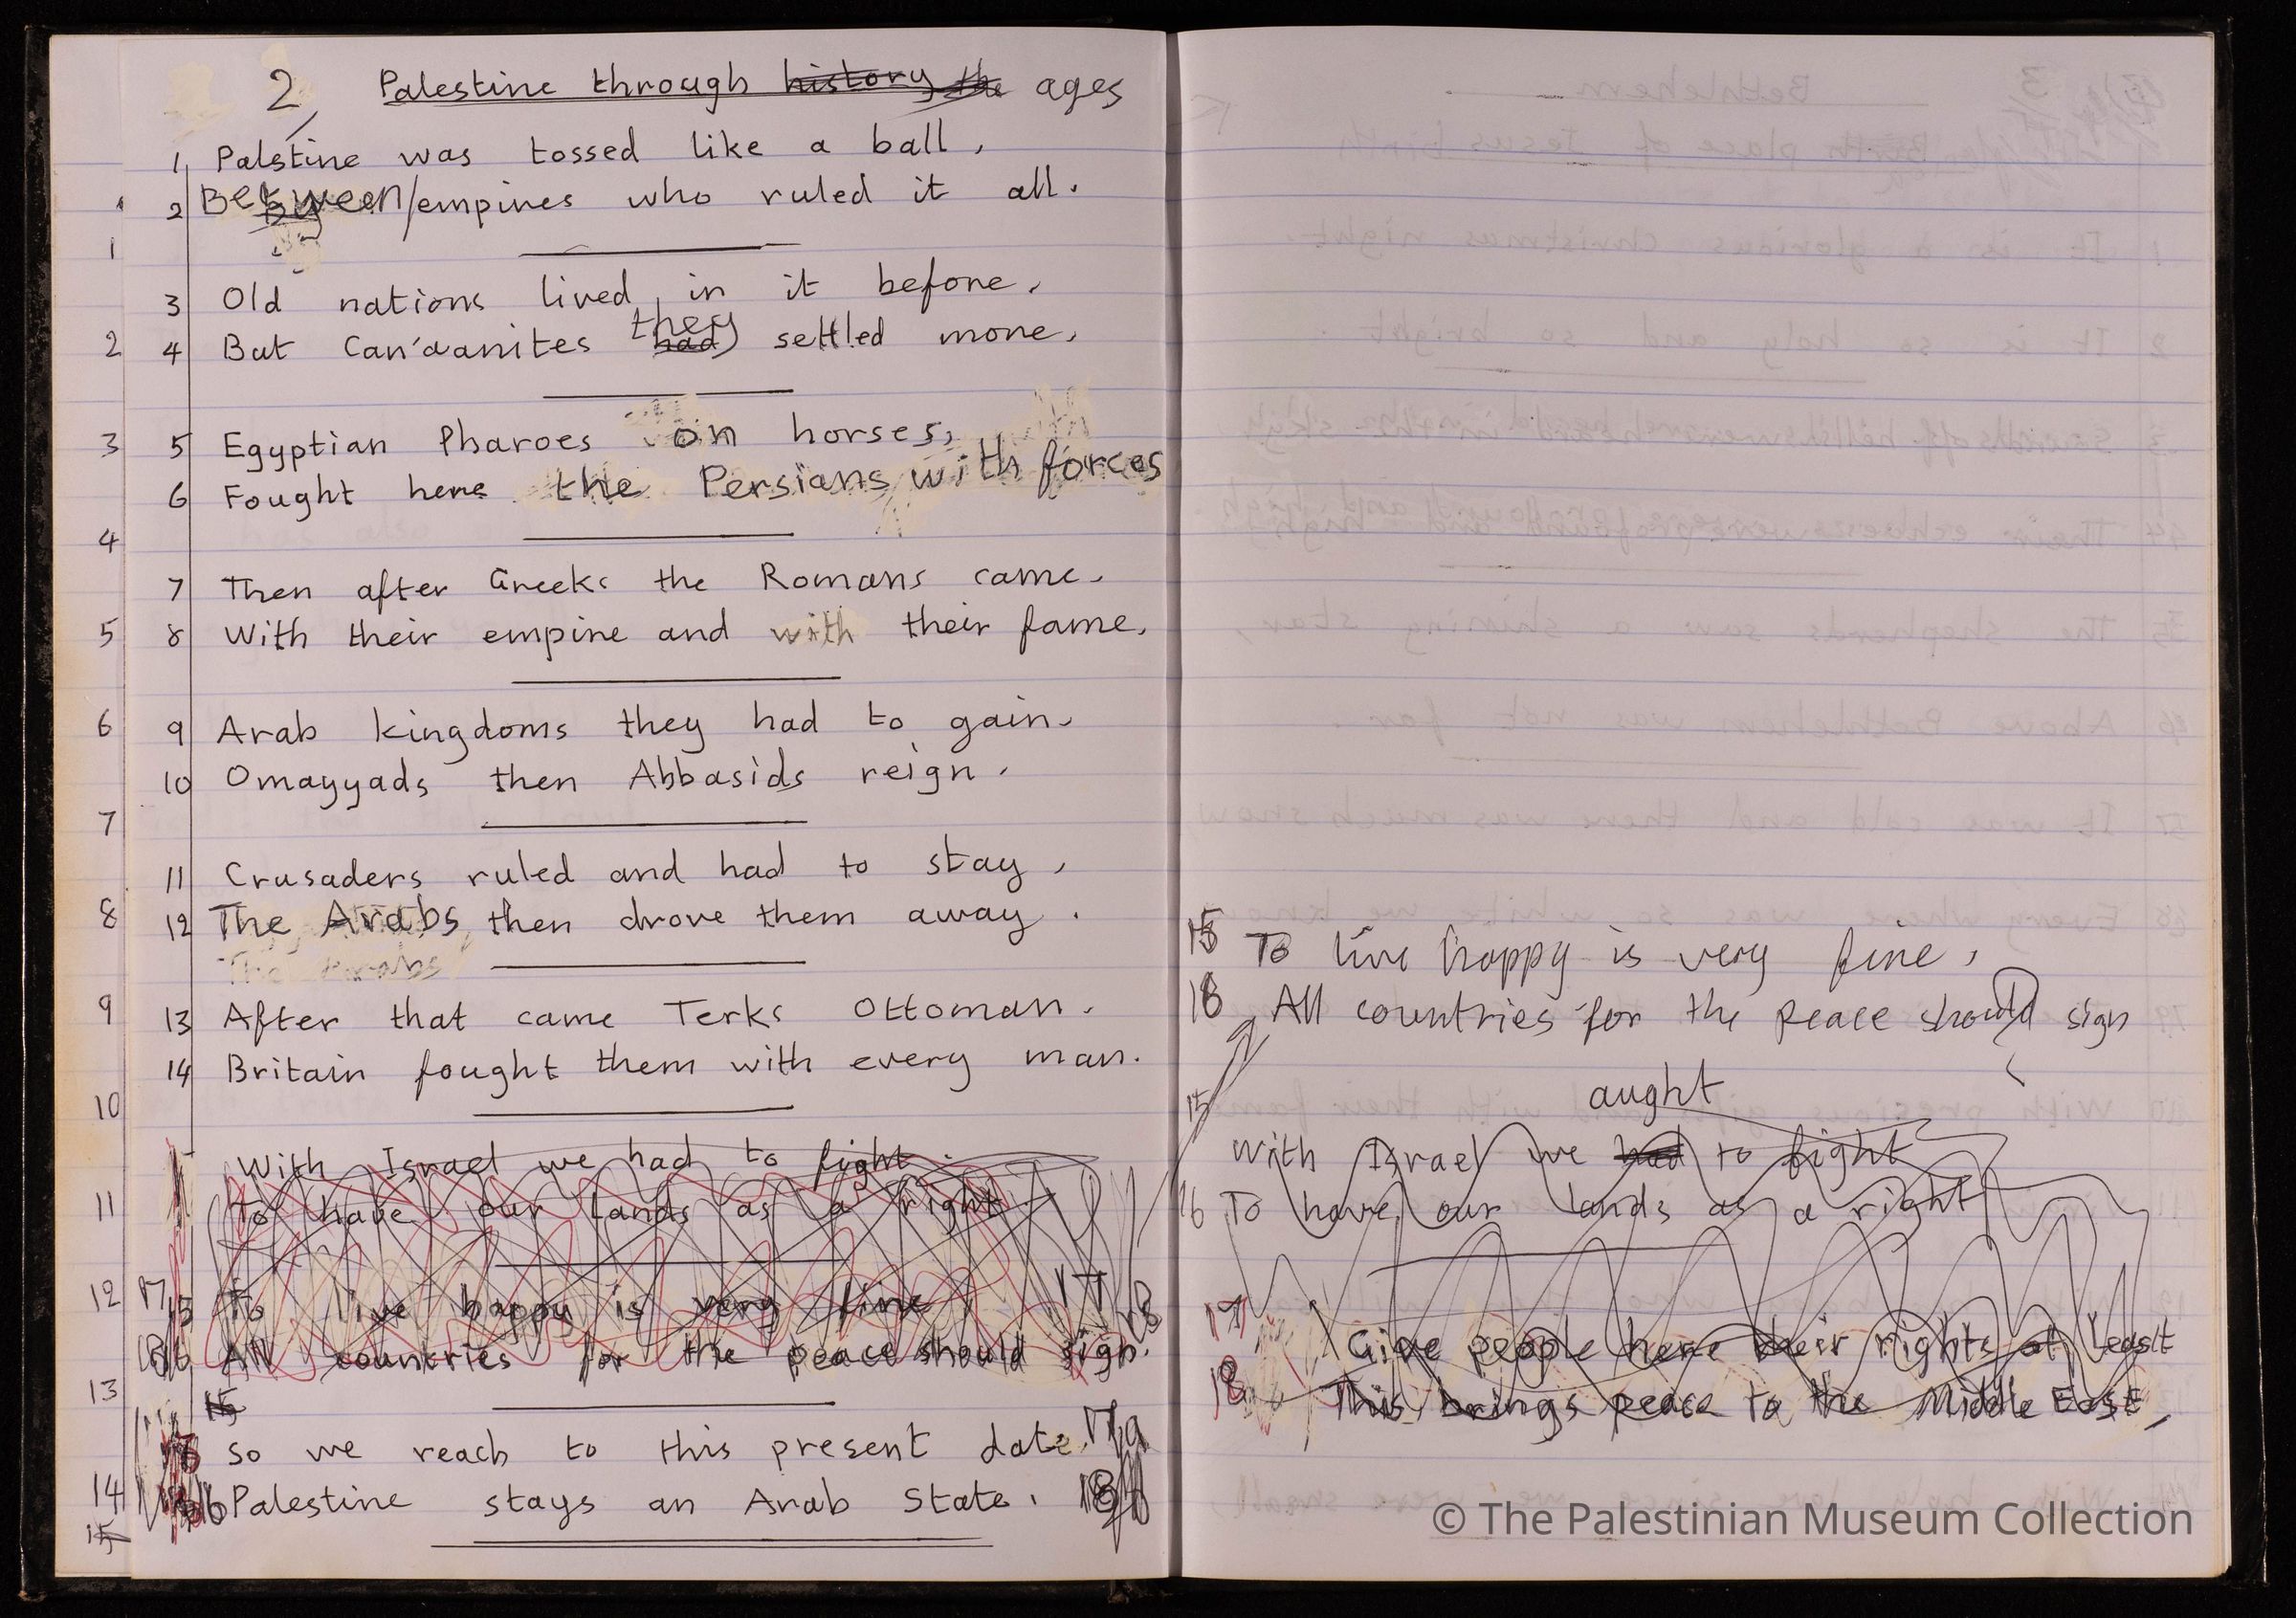 2 Palestine through history the ages
1 Palstine was tossed like a ball,
2 Between empires who ruled it all.
3 Old nations lived in it before,
they
4 But Can'aanites had settled more,
5 Egyptian Pharoes on horses,
6 Fought here the Persians with forces
7 Then after Greeks the Romans came.
8 With their empire and with their fame.
9 Arab kingdoms they had to gain.
10 Omayyads then Abbasids reign.
11 Crusaders ruled and had to stay,
12 The Arabs then drove them away.
The Arabs
13 After that came Terks Ottoman.
14 Britain fought them with every man.
With Israel we had to fight.
To have our lands as a right
15 To live happy is very fine,
16 All countries for the peace should sign.
15
So we reach to this present date.
16 Palestine stays an Arab State.
1
2
3
4
5
6
7
8
9
10
11
12
13
14
15
15 To live happy is very fine,
18 All countries for the peace should sign
aught
15 With Israel we had to fight
16 To have our lands as a right
17 Give people here their rights at least
18 This brings peace to the Middle East,
© The Palestinian Museum Collection